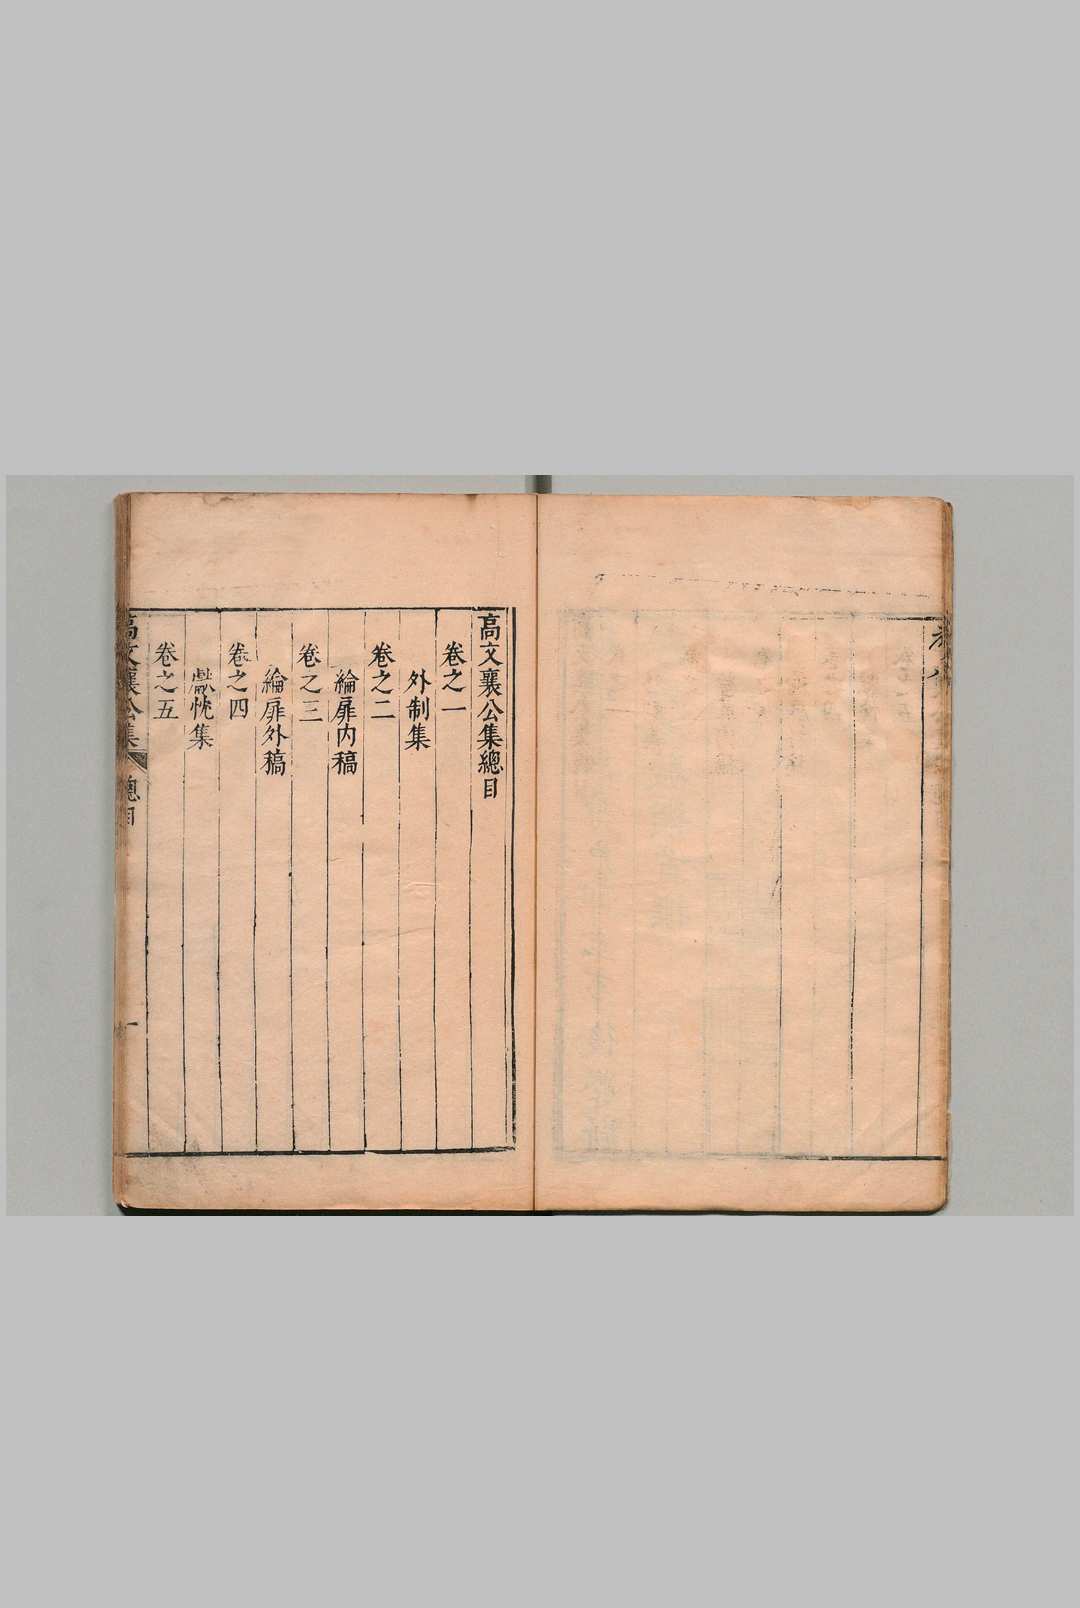 高文襄公集總目
卷之一
外制集
卷之二
綸扉内稿
卷之三
綸扉外稿
卷之四
獻忱集
卷之五
高文襄公集
總目
一